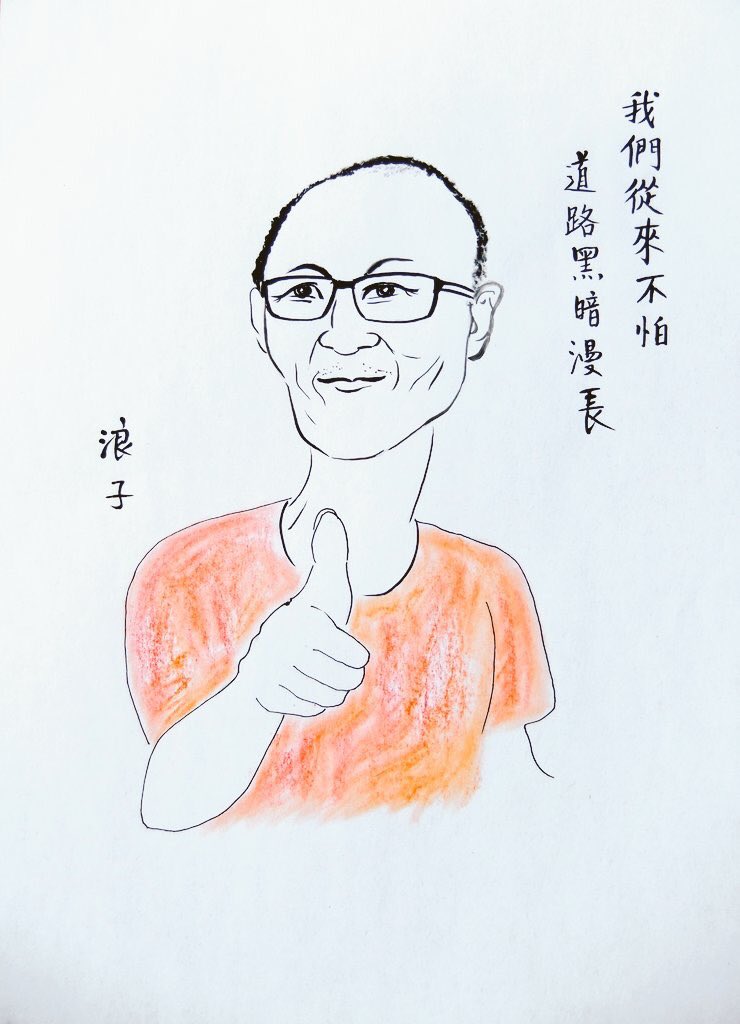 我們從來不怕
道路黑暗漫長
浪子